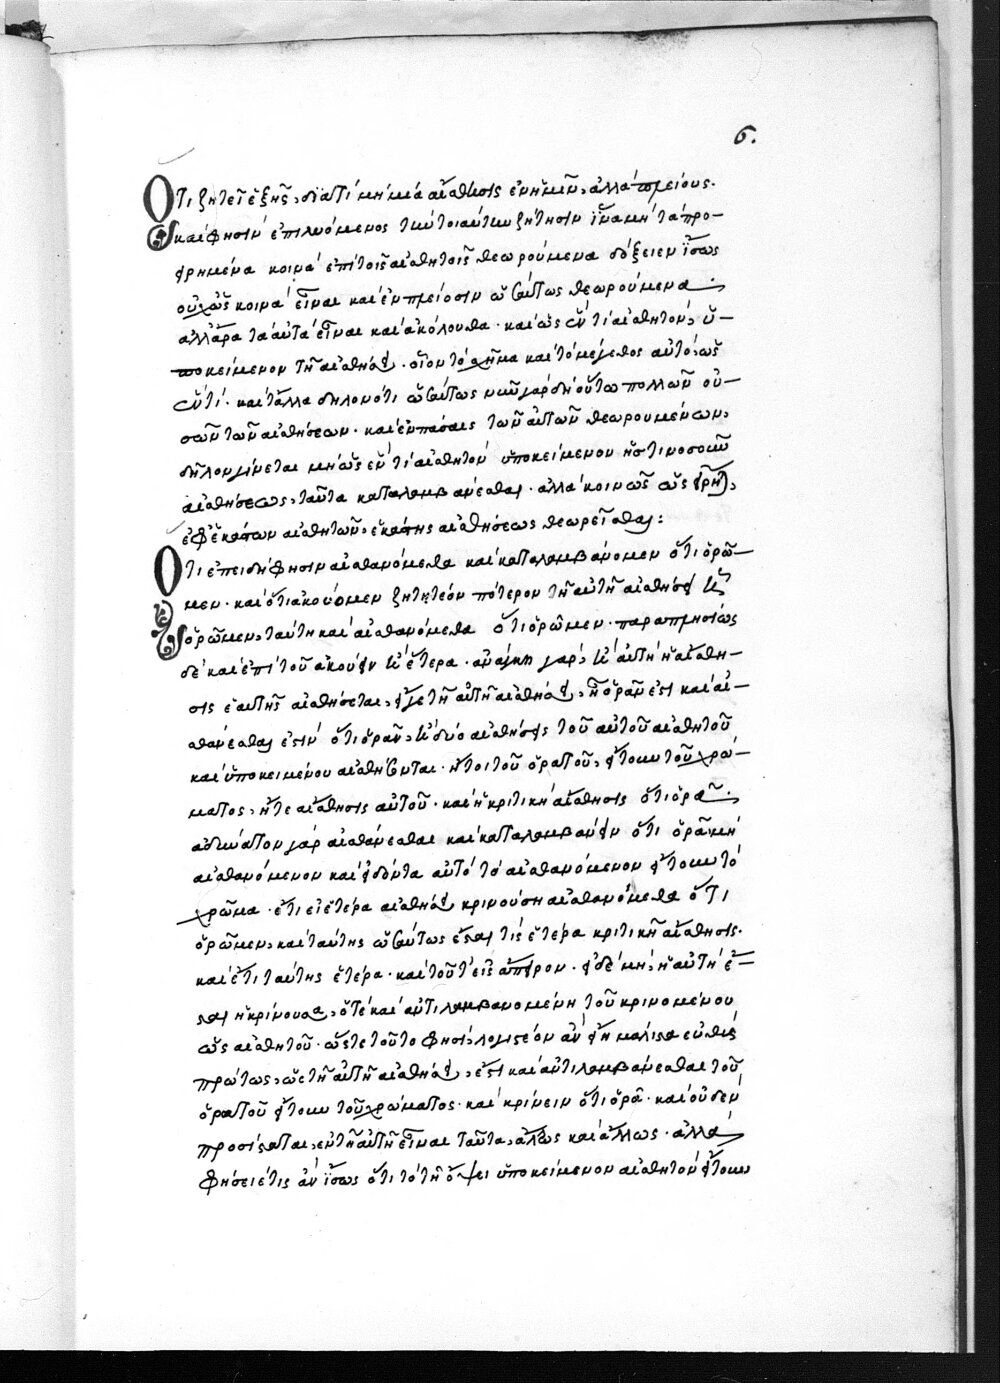 6.
Ὅτι ζητεῖ ἑξῆς, διατί μὴ μιά αἴσθησις ἐν ἡμῖν, ἀλλὰ πλείους.
καί φησιν ἐπιλυόμενος τὴν τοιαύτην ζήτησιν ἵνα μὴ τὰ προ-
ειρημένα κοινὰ ἐπὶ τοῖς αἰσθητοῖς θεωρούμενα δόξειεν ἴσως
οὐχ ὡς κοινὰ εἶναι καὶ ἐν πλείοσιν ὡσαύτως θεωρούμενα,
ἀλλ' ἄρα ταὐτὰ εἶναι καὶ ἀκόλουθα. καὶ ὡς ἕν τι αἰσθητὸν, ὑ-
ποκείμενον τῇ αἰσθήσει. οἷον τὸ σχῆμα καὶ τὸ μέγεθος αὐτὸ, ὡς
ἕν τι. καὶ τἆλλα δηλονότι ὡσαύτως νῦν γὰρ δὴ οὕτω πολλῶν οὐ-
σῶν τῶν αἰσθήσεων. καὶ ἐν πάσαις τῶν αὐτῶν θεωρουμένων,
δῆλον γίνεται μὴ ὡς ἕν τι αἰσθητὸν ὑποκείμενον ἧστινοσοῦν
αἰσθήσεως, ταῦτα καταλαμβάνεσθαι. ἀλλὰ κοινῶς ὡς εἴρηται,
ἐφ' ἑκάστων αἰσθητῶν, ἑκάστης αἰσθήσεως θεωρεῖσθαι:
Ὅτι ἐπειδή φησιν αἰσθανόμεθα καὶ καταλαμβάνομεν ὅτι ὁρῶ-
μεν. καὶ ὅτι ἀκούομεν ζητητέον πότερον τῇ αὐτῇ αἰσθήσει ᾗ
ὁρῶμεν, ταύτῃ καὶ αἰσθανόμεθα ὅτι ὁρῶμεν. παραπλησίως
δὲ καὶ ἐπὶ τοῦ ἀκούειν ἢ ἑτέρα. ἀνάγκη γὰρ, ἢ αὐτὴ ἡ αἴσθη-
σις ἑαυτῆς αἰσθήσεται, εἴγε τῇ αὐτῇ αἰσθήσει, ᾗ ὁρᾶν ἐστι καὶ αἰ-
σθάνεσθαι ἐστὶν ὅτι ὁρᾶν, ἢ δύο αἰσθήσεις τοῦ αὐτοῦ αἰσθητοῦ
καὶ ὑποκειμένου αἰσθήσονται. ἤτοι τοῦ ὁρατοῦ, εἴτουν τοῦ χρώ-
ματος, ἥτε αἴσθησις αὐτοῦ. καὶ ἡ κριτικὴ αἴσθησις ὅτι ὁρᾶ.
ἀδύνατον γὰρ αἰσθάνεσθαι καὶ καταλαμβάνειν ὅτι ὁρᾶ μὴ
αἰσθανόμενον καὶ εἰδότα αὐτὸ τὸ αἰσθανόμενον εἴτουν τὸ
χρῶμα. ἔτι εἰ ἑτέρα αἰσθήσει κρινούσῃ αἰσθανόμεθα ὅτι
ὁρῶμεν, καὶ ταύτης ὡσαύτως ἔσται τὶς ἑτέρα κριτικὴ αἴσθησις.
καὶ ἔτι ταύτης ἑτέρα. καὶ τοῦτ' εἰς ἄπειρον. εἰ δὲ μὴ, ἡ αὐτὴ ἔ-
σται ἡ κρίνουσα, ὅτε καὶ ἀντιλαμβανομένη τοῦ κρινομένου
ὡς αἰσθητοῦ. ὥστε τοῦτο φησὶ, λογιστέον ἂν εἴη μάλιστα εὐθὺς
πρώτως, ὡς τῇ αὐτῇ αἰσθήσει, ἔστι καὶ ἀντιλαμβάνεσθαι τοῦ
ὁρατοῦ εἴτουν τοῦ χρώματος. καὶ κρίνειν ὅτι ὁρᾶ. καὶ οὐδὲν
προσίσταται, ἐν τῇ αὐτῇ εἶναι ταῦτα, ἄλλως καὶ ἄλλως. ἀλλὰ
φήσειέ τις ἂν ἴσως ὅτι τὸ τῇ ὄψει ὑποκείμενον αἰσθητὸν εἴτουν